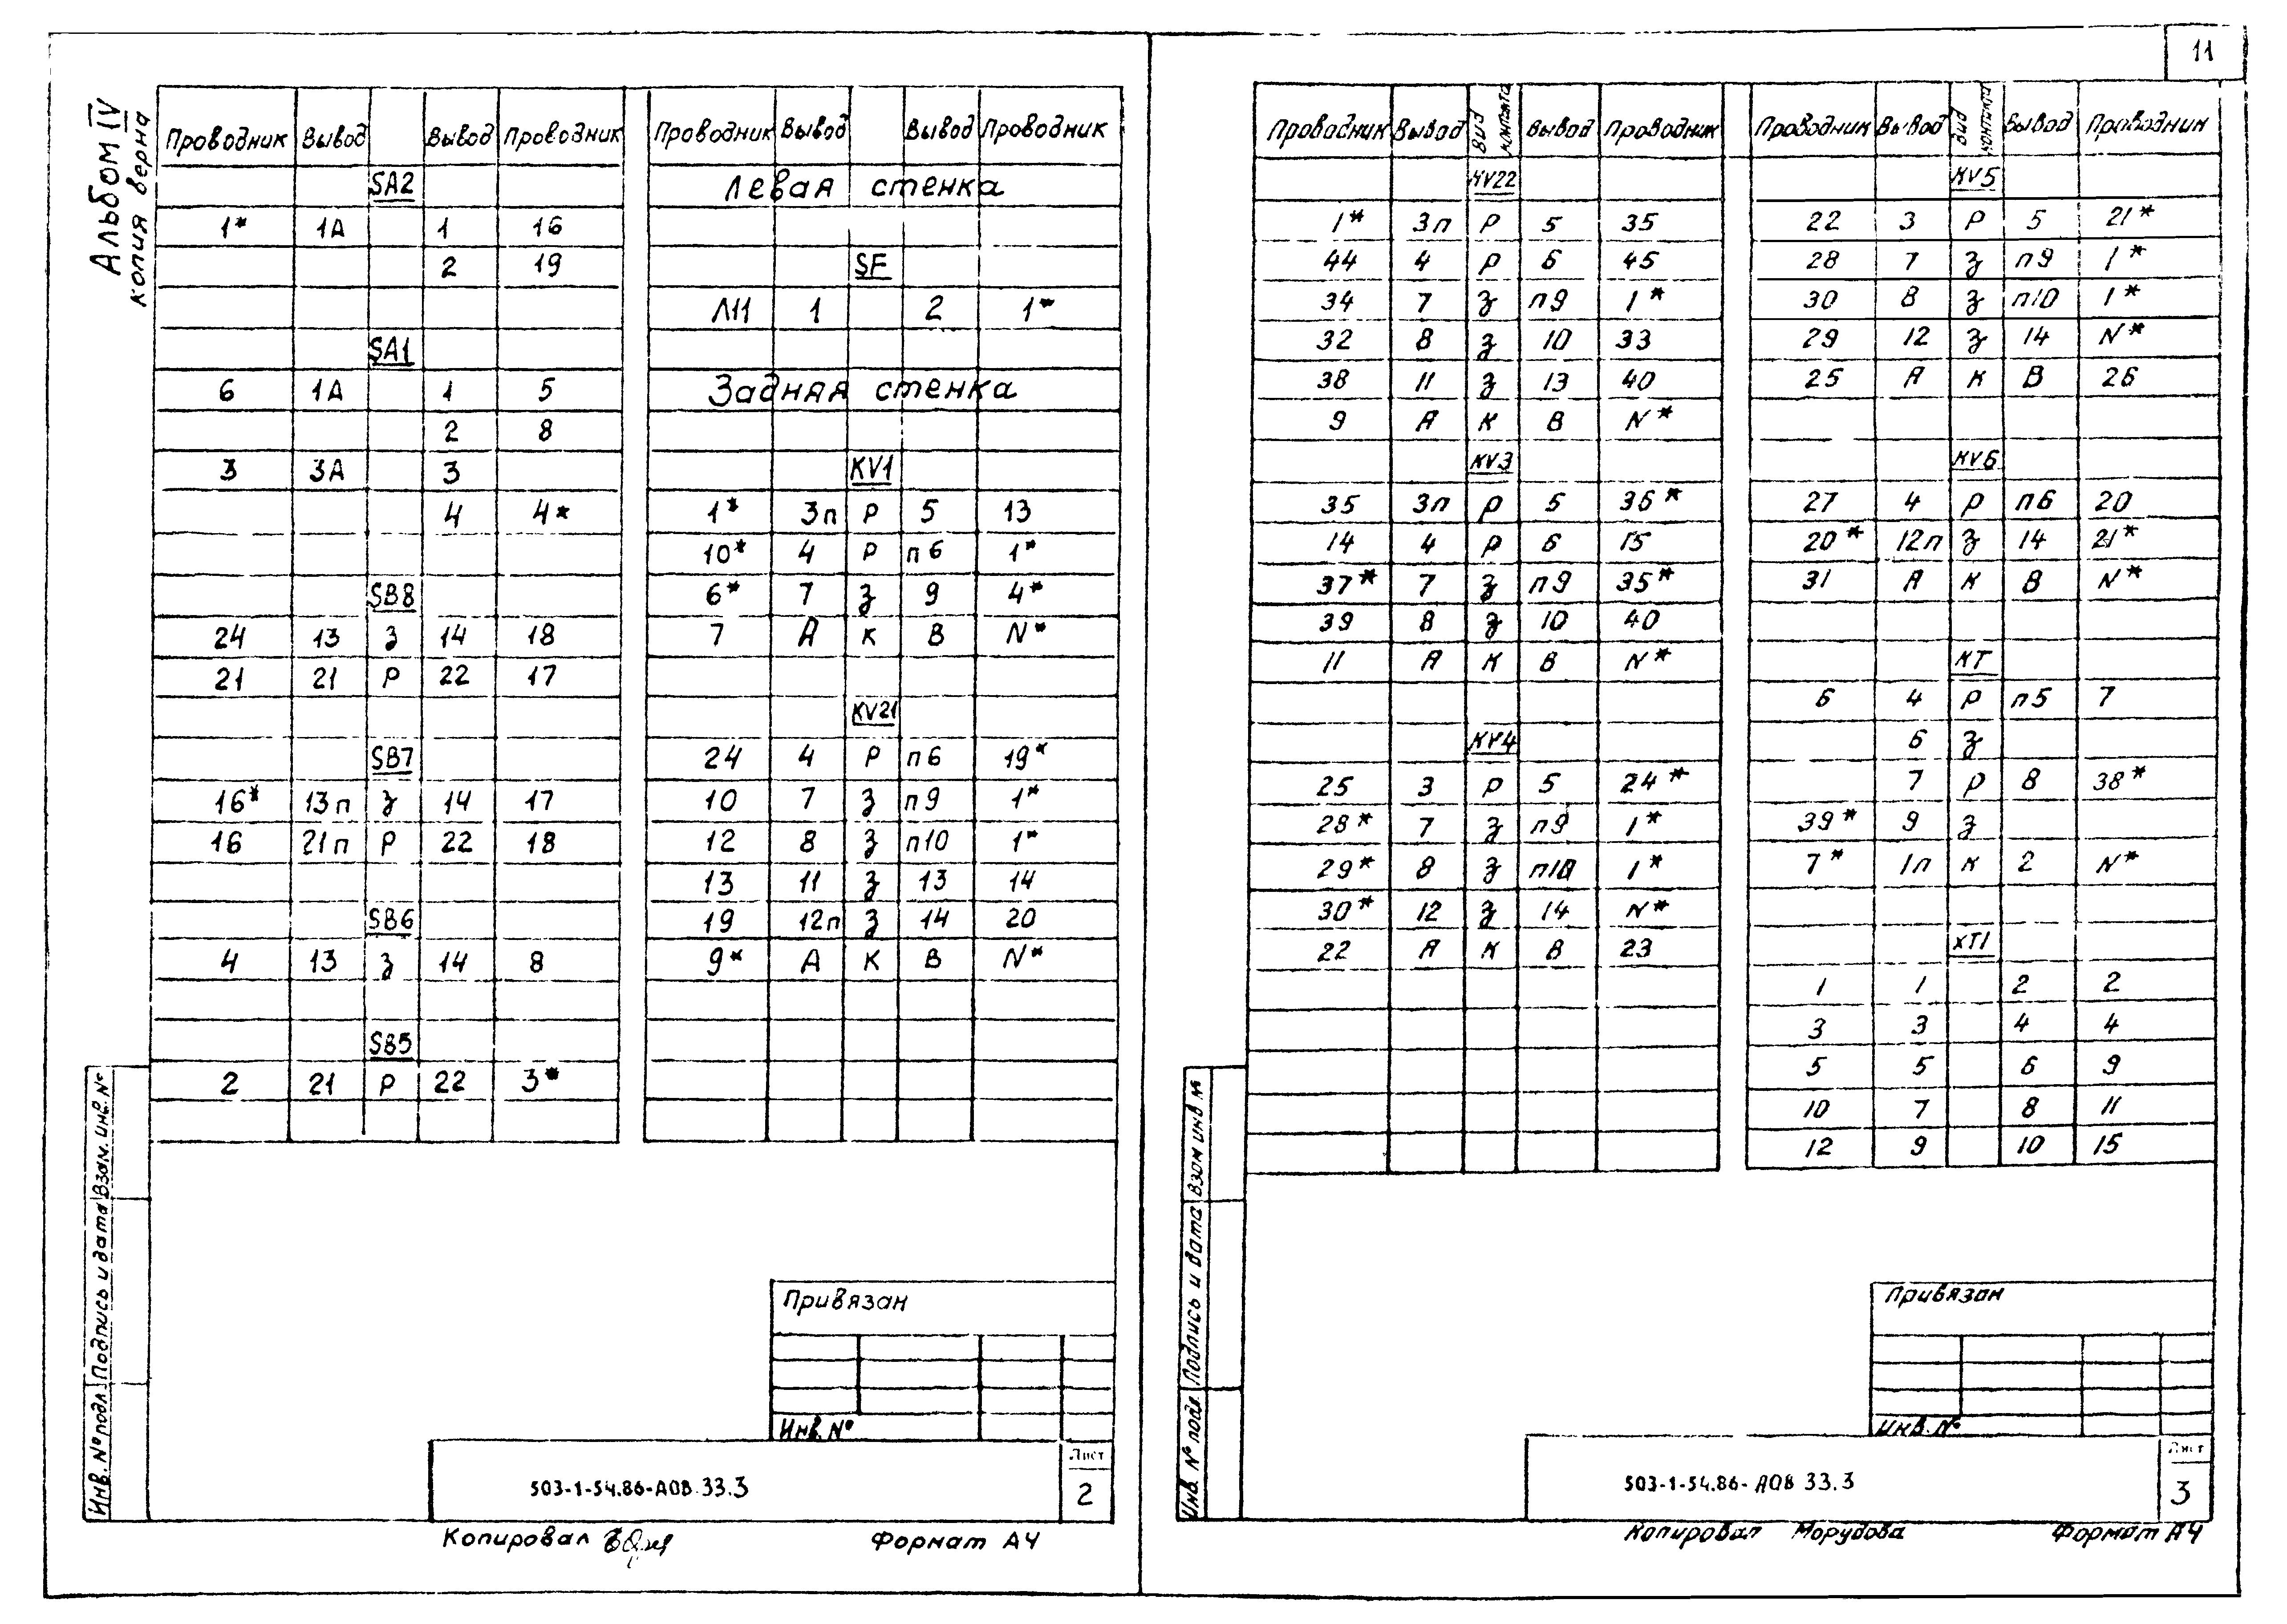 11
Альбом IV
копия верна
Проводник Вывод Вывод Проводник
SA2
1* 1А 1 16
2 19
SA1
6 1А 1 5
2 8
3 3А 3
4 4*
SB8
24 13 З 14 18
21 21 Р 22 17
SB7
16* 13п З 14 17
16 21п Р 22 18
SB6
4 13 З 14 8
SB5
2 21 Р 22 3*
Проводник Вывод Вывод Проводник
Левая стенка
SF
Л11 1 2 1*
Задняя стенка
KV1
1* 3п Р 5 13
10* 4 Р п6 1*
6* 7 З 9 4*
7 А К В N*
KV21
24 4 Р п6 19*
10 7 З п9 1*
12 8 З п10 1*
13 11 З 13 14
19 12п З 14 20
9* А К В N*
Привязан
Инв. №
503-1-54.86-АОВ.33.3
Лист
2
Копировал
Формат А4
Инв. № подл. Подпись и дата Взам. инв. №
Проводник Вывод Вид контакта Вывод Проводник
KV22
1* 3п Р 5 35
44 4 Р 6 45
34 7 З п9 1*
32 8 З 10 33
38 11 З 13 40
9 А К В N*
KV3
35 3п Р 5 36*
14 4 Р 6 15
37* 7 З п9 35*
39 8 З 10 40
11 А К В N*
KV4
25 3 Р 5 24*
28* 7 З п9 1*
29* 8 З п10 1*
30* 12 З 14 N*
22 А К В 23
Проводник Вывод Вид контакта Вывод Проводник
KV5
22 3 Р 5 21*
28 7 З п9 1*
30 8 З п10 1*
29 12 З 14 N*
25 А К В 26
KV6
27 4 Р п6 20
20* 12п З 14 21*
31 А К В N*
KT
6 4 Р п5 7
6 З
7 Р 8 38*
39* 9 З
7* 1п К 2 N*
XT1
1 1 2 2
3 3 4 4
5 5 6 9
10 7 8 11
12 9 10 15
Привязан
Инв. №
503-1-54.86-АОВ 33.3
Лист
3
Копировал Морудова
Формат А4
Инв. № подл Подпись и дата Взам инв №